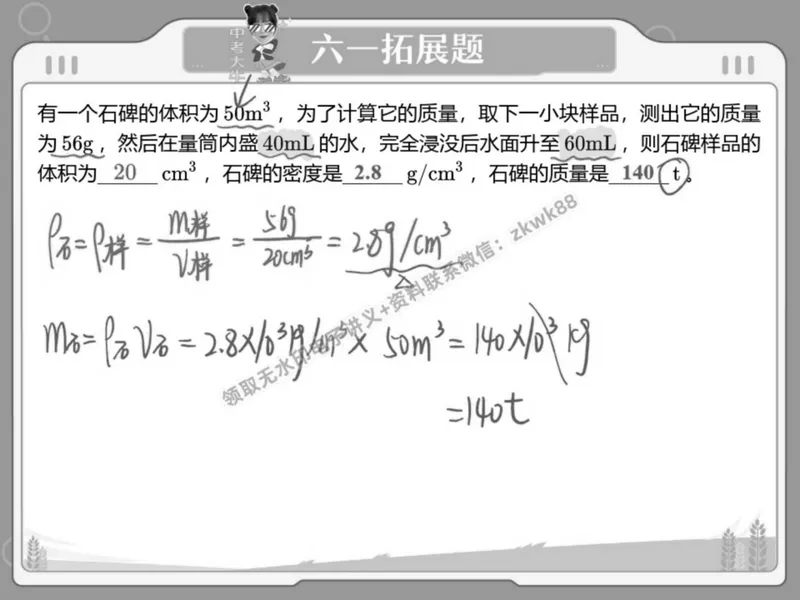 中考大牛
六一拓展题
有一个石碑的体积为50m³，为了计算它的质量，取下一小块样品，测出它的质量
为56g，然后在量筒内盛40mL的水，完全浸没后水面升至60mL，则石碑样品的
体积为 20 cm³，石碑的密度是 2.8 g/cm³，石碑的质量是 140 t。
ρ石=ρ样=m样/V样=56g/20cm³=2.8g/cm³
m石=ρ石V石=2.8×10³kg/m³×50m³=140×10³kg
=140t
领取无水印电子讲义+资料联系微信：zkwk88